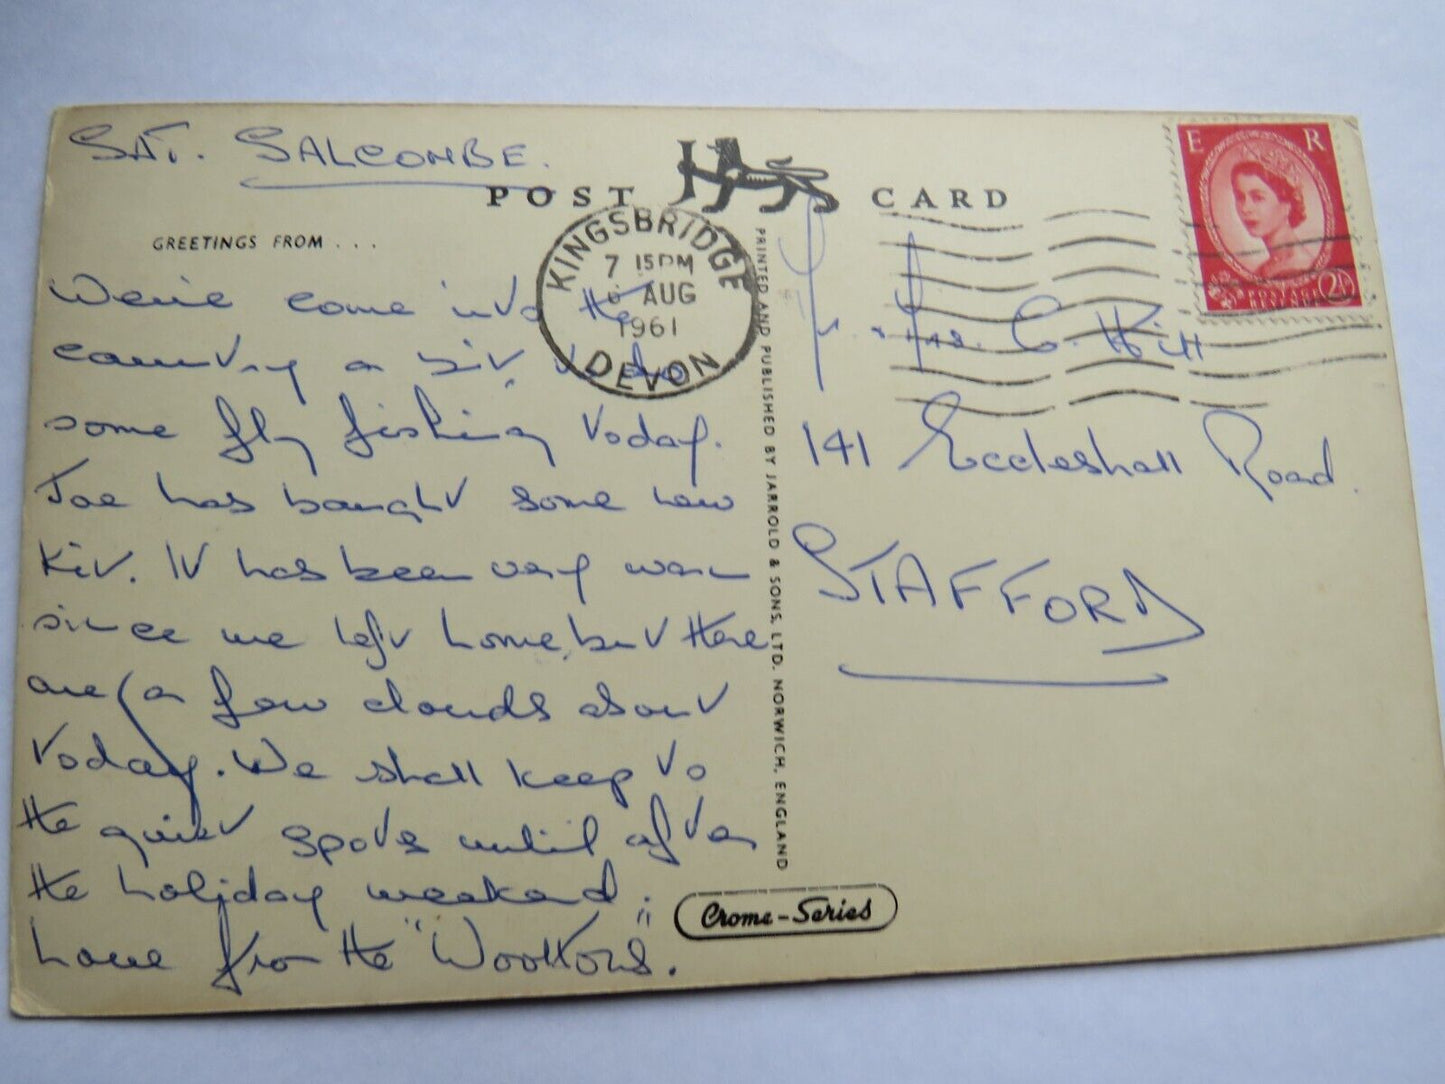 SAT. SALCOMBE.
POST CARD
GREETINGS FROM . . .
We've come into the
country a bit, to do
some fly fishing today.
Joe has bought some new
kit. It has been very warm
since we left home, but there
are a few clouds about
today. We shall keep to
the quiet spots until after
the holiday weekend.
Love from the "Woottons".
KINGSBRIDGE
7 15PM
6 AUG
1961
DEVON
PRINTED AND PUBLISHED BY JARROLD & SONS, LTD. NORWICH, ENGLAND
Crome-Series
E R
2½D
C. Hill
141 Eccleshall Road.
STAFFORD